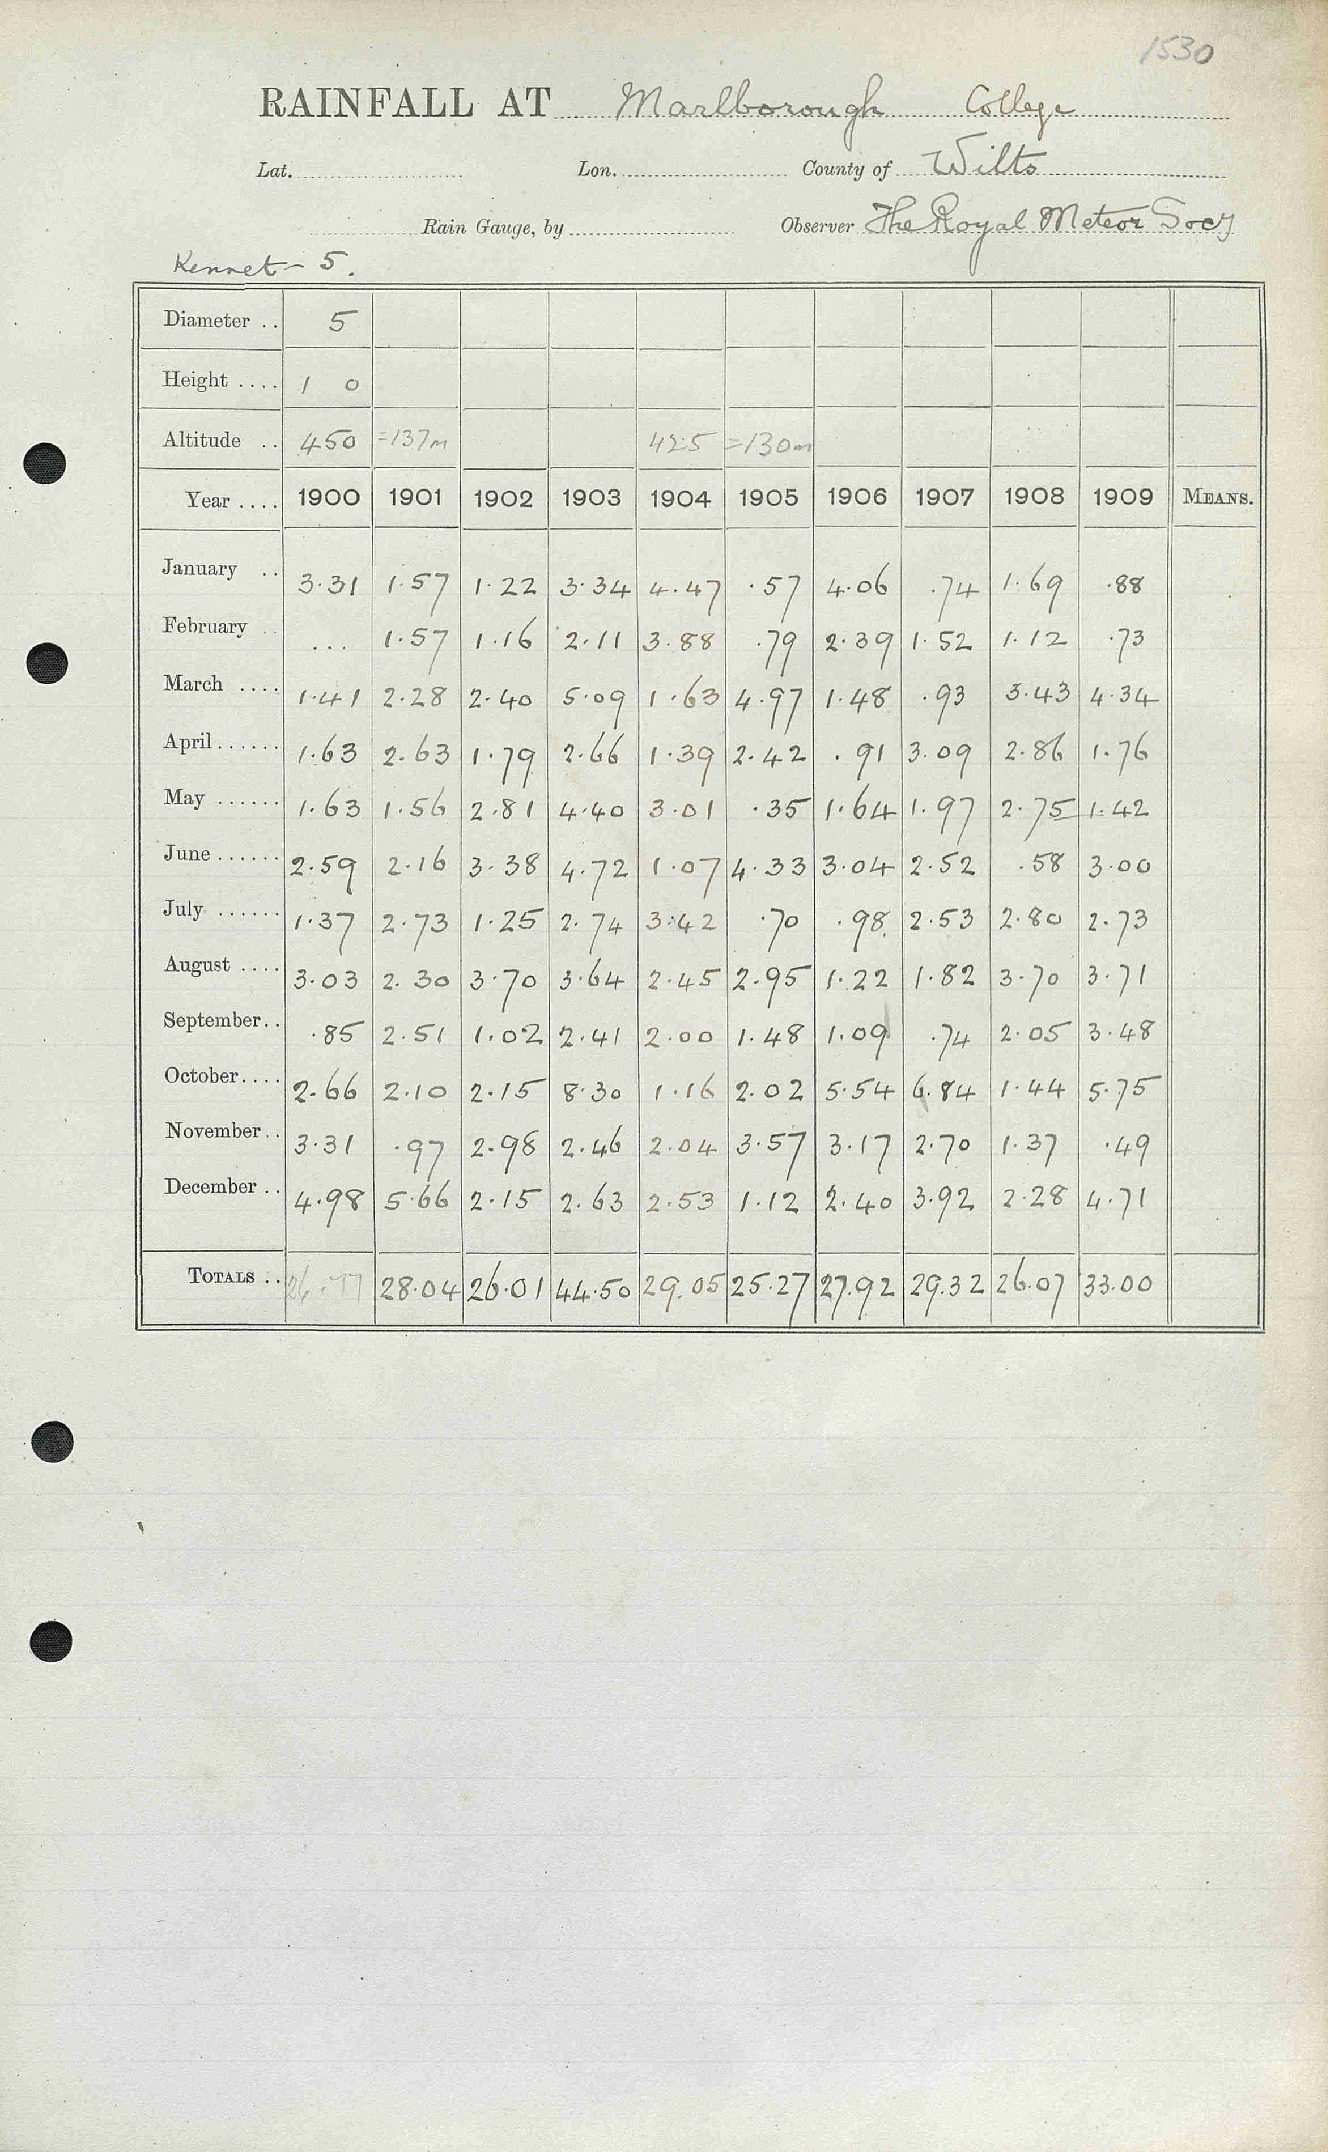 1530
RAINFALL AT Marlborough College
Lat. Lon. County of Wilts
Rain Gauge, by Observer The Royal Meteor Socy
Kennet - 5.
Diameter .. 5
Height .... 1 0
Altitude .. 450 =137m 425 =130m
Year .... 1900 1901 1902 1903 1904 1905 1906 1907 1908 1909 MEANS.
January .. 3.31 1.57 1.22 3.34 4.47 .57 4.06 .74 1.69 .88
February .. ... 1.57 1.16 2.11 3.88 .79 2.39 1.52 1.12 .73
March .... 1.41 2.28 2.40 5.09 1.63 4.97 1.48 .93 3.43 4.34
April...... 1.63 2.63 1.79 2.66 1.39 2.42 .91 3.09 2.86 1.76
May ...... 1.63 1.56 2.81 4.40 3.01 .35 1.64 1.97 2.75 1.42
June...... 2.59 2.16 3.38 4.72 1.07 4.33 3.04 2.52 .58 3.00
July ...... 1.37 2.73 1.25 2.74 3.42 .70 .98 2.53 2.80 2.73
August .... 3.03 2.30 3.70 3.64 2.45 2.95 1.22 1.82 3.70 3.71
September.. .85 2.51 1.02 2.41 2.00 1.48 1.09 .74 2.05 3.48
October.... 2.66 2.10 2.15 8.30 1.16 2.02 5.54 6.84 1.44 5.75
November.. 3.31 .97 2.98 2.46 2.04 3.57 3.17 2.70 1.37 .49
December .. 4.98 5.66 2.15 2.63 2.53 1.12 2.40 3.92 2.28 4.71
TOTALS .. 26.77 28.04 26.01 44.50 29.05 25.27 27.92 29.32 26.07 33.00